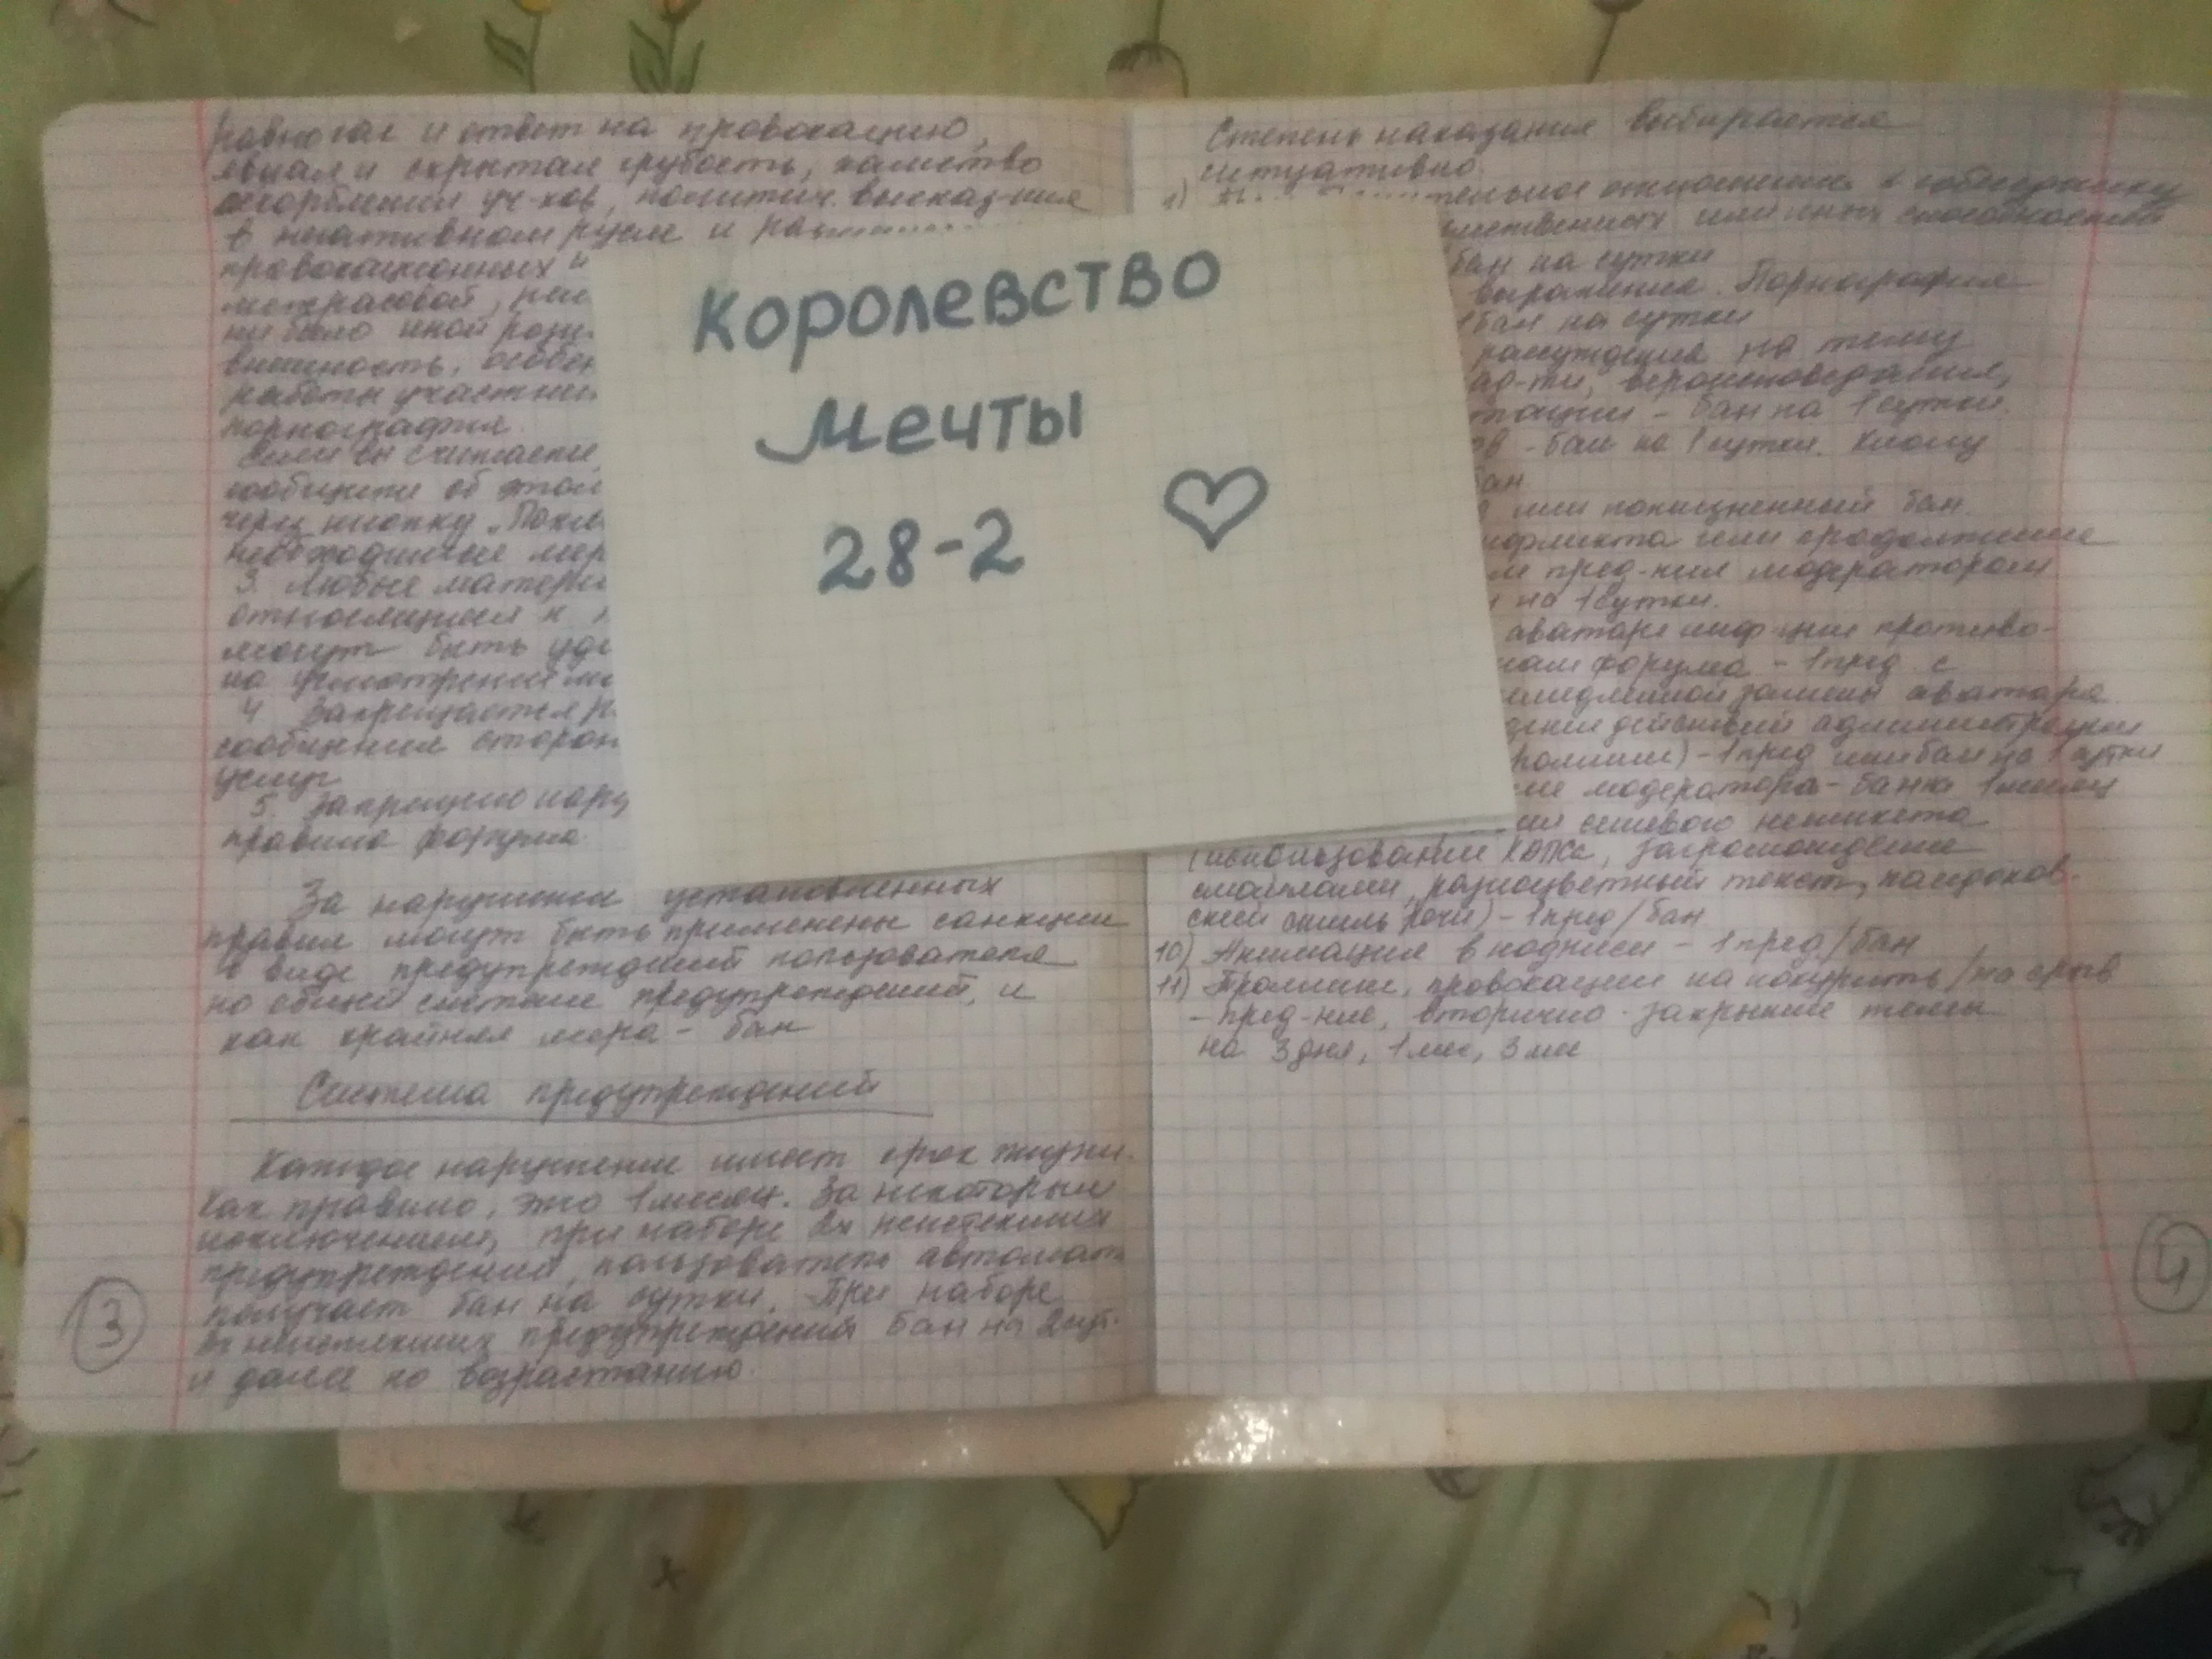 равно как и ответ на провокацию,
явная и скрытая грубость, хамство
оскорбления уч-ков, политич. высказ-ния
в негативном русле и
провокационных и
межрасовой,
ни было иной розн
внешность, особен
работы участни
порнография.
Если вы считаете,
сообщите об этом
через кнопку "Пожа
необходимые мер
3. Любые матери
относящиеся к
могут быть уда
на усмотрение мо
4. Запрещается р
сообщения сторон
услуг
5. Запрещено нару
правила форума.
За нарушения установленных
правил могут быть применены санкции
в виде предупреждений пользователя
по общей системе предупреждений, и
как крайняя мера - бан
Система предупреждений
Каждое нарушение имеет срок жизни.
Как правило, это 1 месяц. За некоторым
исключением, при наборе 2х неистекших
предупреждений, пользователь автомат.
получает бан на сутки. При наборе
неистекших предупреждений бан на 2 сут.
и далее по возрастанию.
3
Королевство
Мечты
28-2
Степень наказания выбирается
ситуативно.
1) тельное отношение к собеседнику
умственных или иных способностей
бан на сутки
выражения. Порнография
1 бан на сутки
рассуждения на тему
ад-ти, вероисповедания,
тации - бан на 1 сутки.
ов - бан на 1 сутки. Клону
бан.
или пожизненный бан.
онфликта или продолжение
пред-ния модератором
на 1 сутки.
аватаре инф-ции противо-
лам форума - 1 пред. с
немедленной замены аватара.
дение действий администрации
- 1 пред или бан на 1 сутки
ние модератора - бан на 1 месяц
ия сетевого неэтикета
(использование КАПСа, загромождение
смайлами, разноцветный текст, падонков-
ский стиль речи) - 1 пред/бан
10) Анимация в подписи - 1 пред./бан
11) Троллинг, провокации на
- пред-ние, вторично - закрытие темы
на 3 дня, 1 мес, 3 мес
4